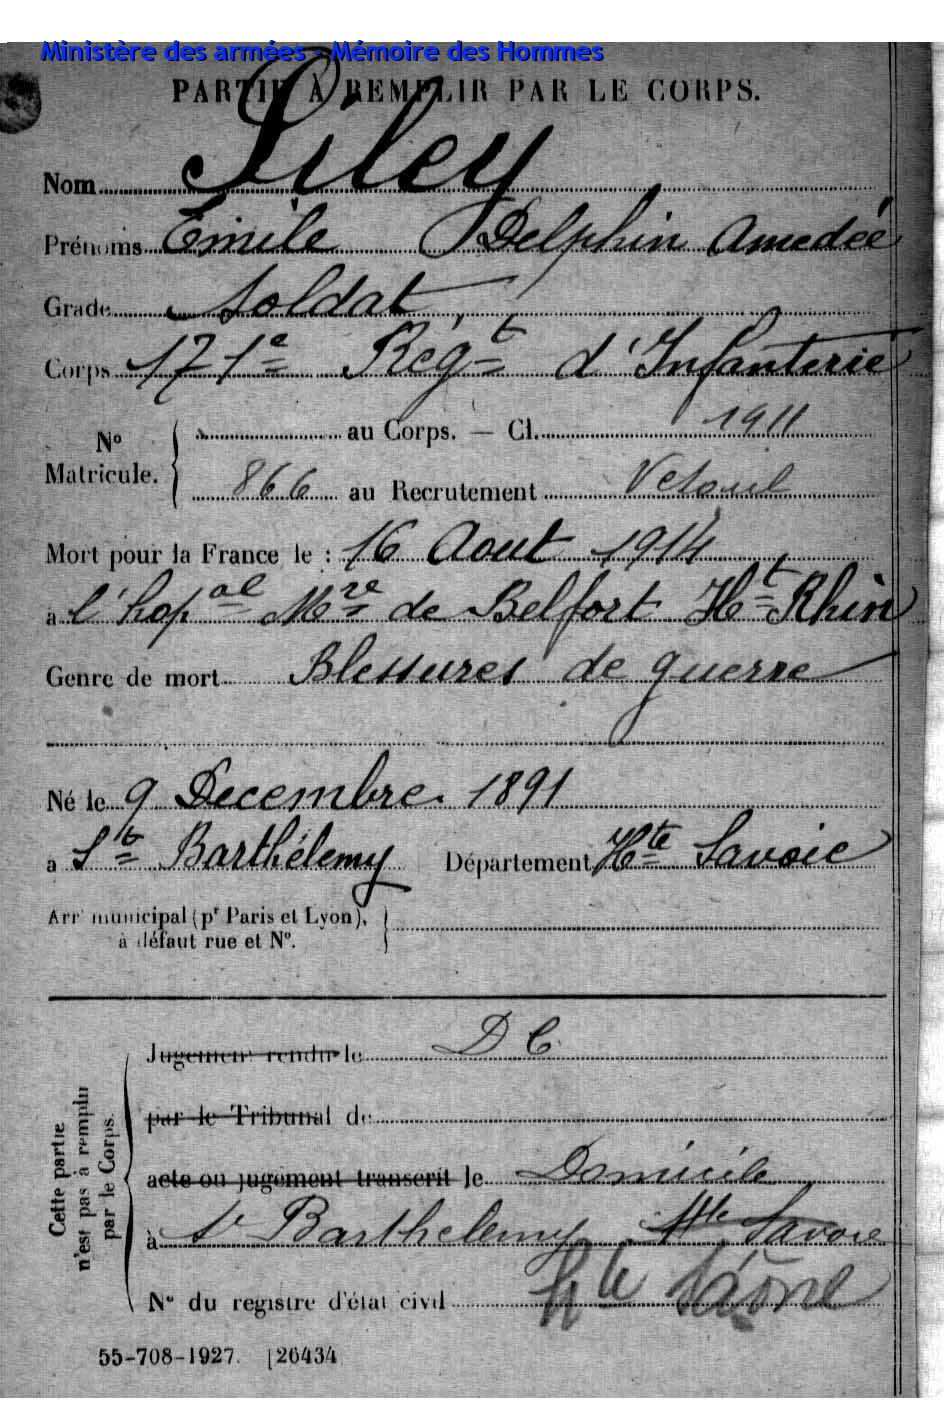 Ministère des armées - Mémoire des Hommes
PARTIE À REMPLIR PAR LE CORPS.
Nom Siley
Prénoms Emile Delphin Amedée
Grade Soldat
Corps 171e Régt d'Infanterie
No Matricule. { au Corps. — Cl. 1911
866 au Recrutement Vesoul
Mort pour la France le : 16 Aout 1914
a l'hopal Mre de Belfort Ht Rhin
Genre de mort Blessures de guerre
Né le 9 Decembre 1891
a St Barthélemy Département Hte Savoie
Arrt municipal (pr Paris et Lyon), à défaut rue et No.
Jugement rendu le D C.
par le Tribunal de
acte ou jugement transcrit le Domicile
à St Barthelemy Hte Savoie
Hte Saône
No du registre d'état civil
Cette partie n'est pas à remplir par le Corps.
55-708-1927. [26434